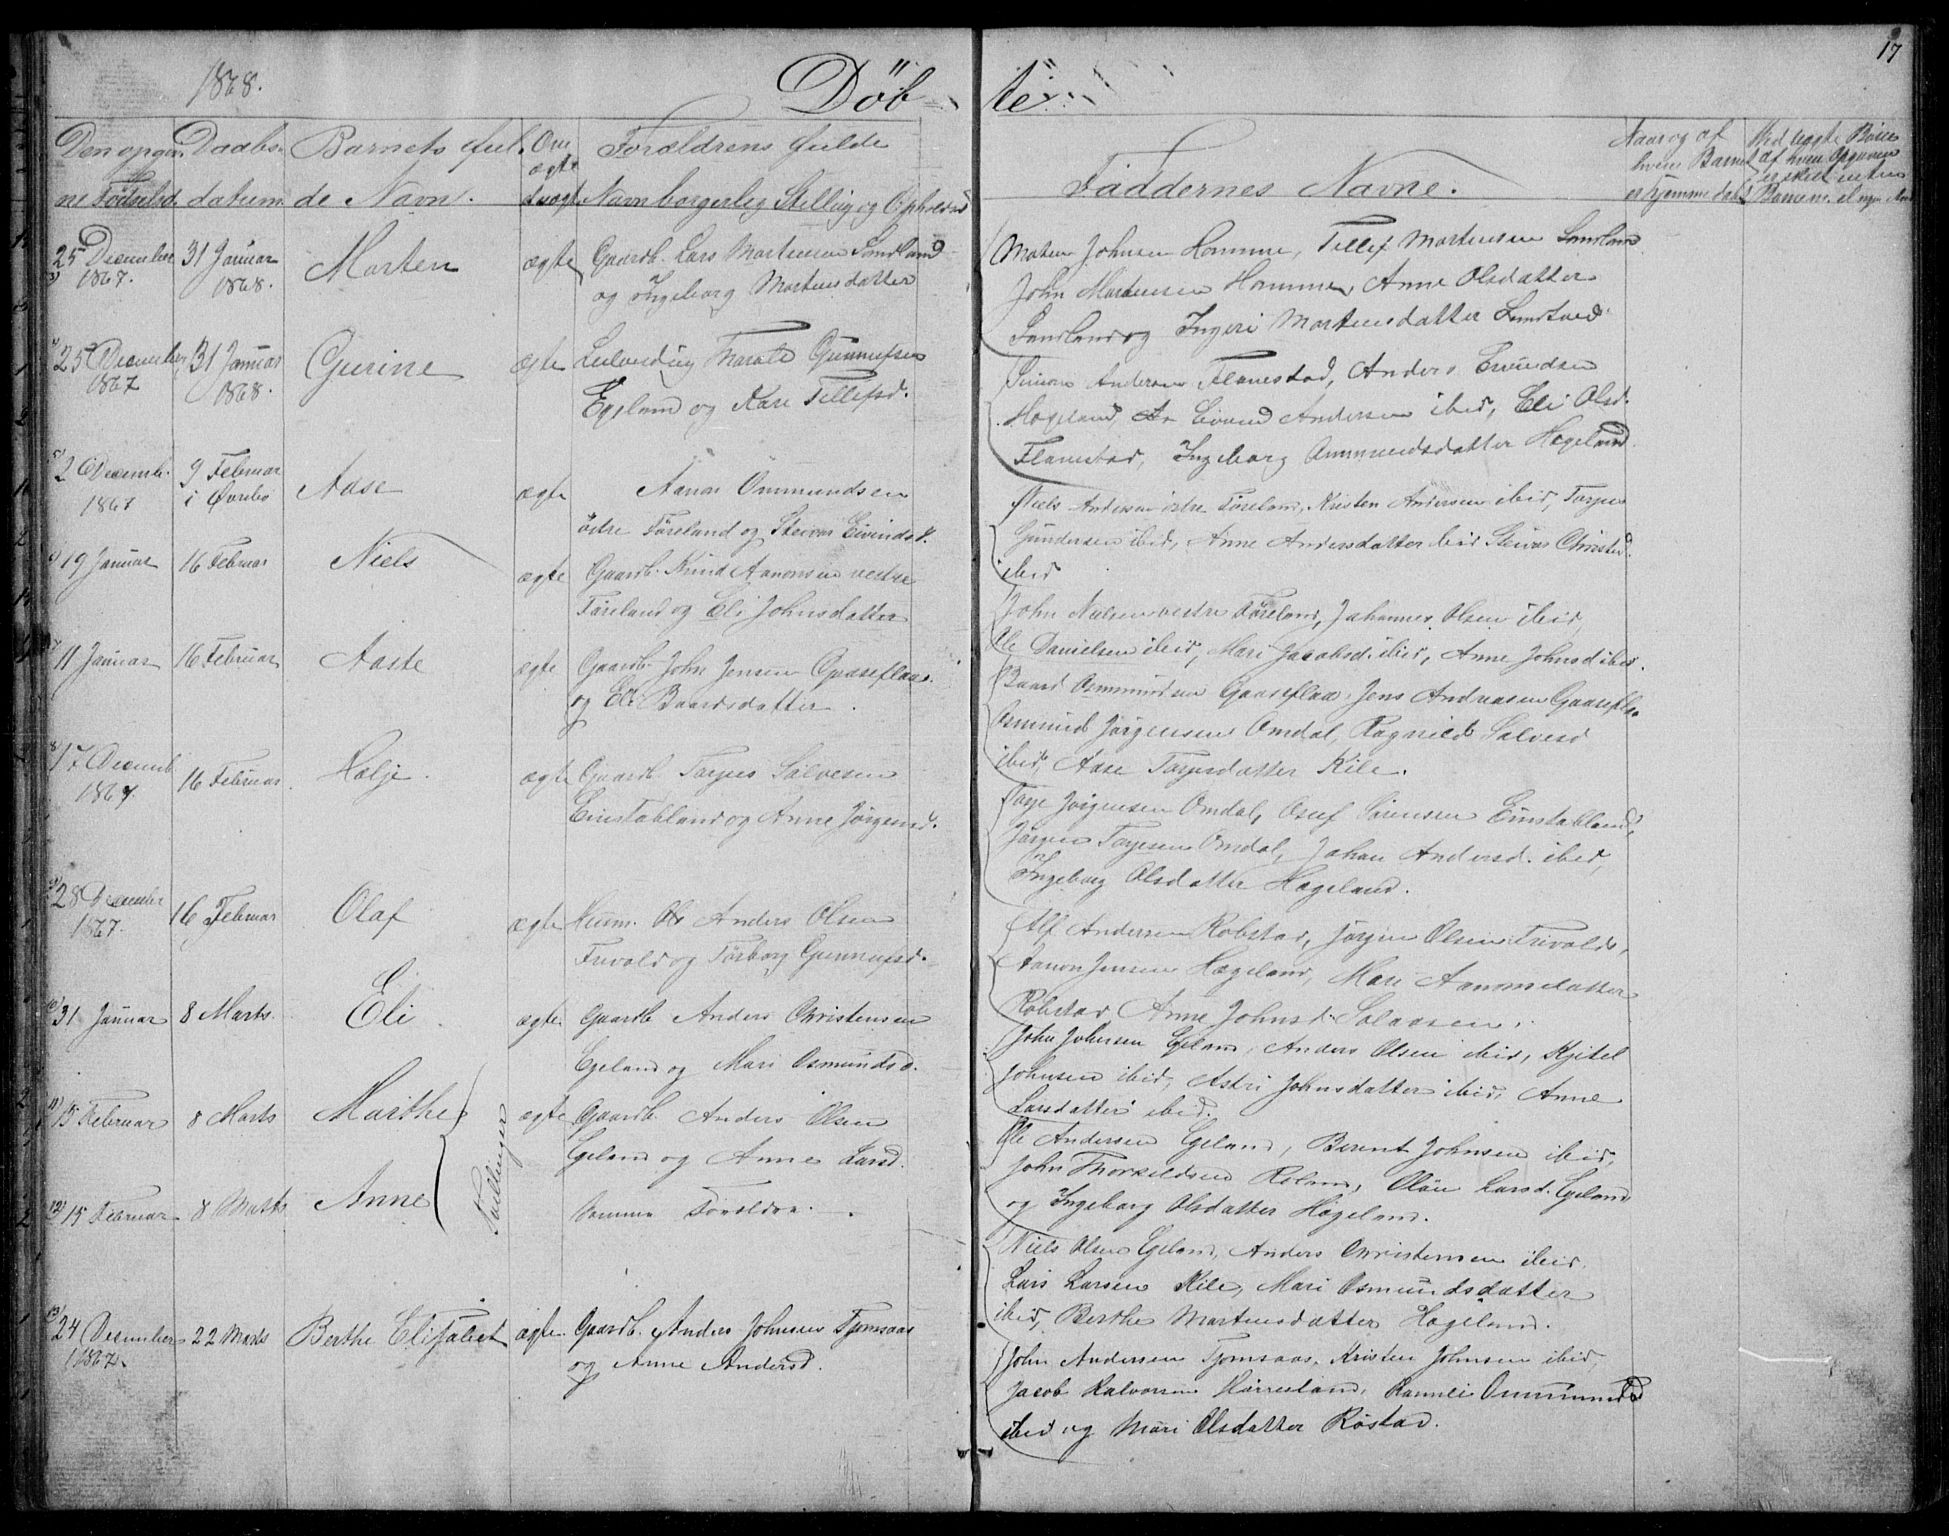 17
1868.
Döb-
te
Den opgiv- Daabs- Barnets ful- Om Forældrens fulde
ægte
ne Födselsd. datum de Navn. d. uægt Navn borgerlig Stilling og Ophold
Faddernes Navne.
Naar og af
hven Barnet
er hjemmedøbt
Ved uægte Börn
af hven Opgiven
er skeet
25 December 31 Januar Morten ægte Gaardb. Lars Martensen Sandland
1867. 1868. og Ingeborg Martensdatter
25 December 31 Januar Gurine ægte Leilænding Gunnufsen
1867 1868. Egeland og Kari Tellefsd.
2 Decemb. 9 Februar Aase ægte Aanon Ommundsen
1867 i Øvrebo östre Föreland og Eivindsd.
19 Januar 16 Februar Niels ægte Gaardb. Knud Aanonsen vestre
Föreland og Eli Johnsdatter
11 Januar 16 Februar Aaste ægte Gaardb. John Jensen Gaaseflaa
og Eli Baardsdatter.
17 Decemb 16 Februar. Holje. ægte Gaardb. Tarjus Salvesen
1867. Einstabland og Anne Jörgensd.
28 December 16 Februar Olaf ægte Huusm. Anders Olsen
1867. Trivold og Törborg Gunnufsd.
31 Januar 8 Marts. Eli ægte Gaardb Anders Christensen
Egeland og Mari Osmundsd.
15 Februar 8 Marts Marthe ægte Gaardb. Anders Olsen
Egeland og Anne Larsd.
Tvillinger
15 Februar 8 Marts Anne Samme Forældre.
24 December 22 Marts Berthe Elisabet ægte Gaardb. Anders Johnsen Tjomsaas
1867. og Anne Andersd.
Johnsen Homme, Tellef Martensen Sandland
John Martensen Homme, Anne Olsdatter
Sandland og Ingeri Martensdatter
Simon Andersen Flanestad, Anders Eivindsen
Hægeland, Eivind Andersen ibid, Eli Olsd.
Flanestad, Ingeborg Ommundsdatter Hægeland
Niels Andersen östre Föreland, Kristen Andersen ibid, Tarjus
Gundersen ibid, Anne Andersdatter ibid
ibid
John Nielsen vestre Föreland, Johannes Olsen ibid
Ole Danielsen ibid, Mari Jacobsd. ibid, Anne Johnsd ibid.
Baard Osmundsen Gaaseflaa, Jens Andreasen Gaaseflaa
Osmund Jörgensen Omdal, Ragnild Salvesd
ibid, Aase Tarjesdatter Kile.
Tarje Jörgensen Omdal, Osuf Sörensen Einstabland,
Jörgen Tarjesen Omdal, Johan Andersd. ibid,
Ingeborg Olsdatter Hægeland.
Alf Andersen Robstad, Jörgen Olsen Trivold,
Aanon Jensen Hægeland, Mari Aanonsdatter
Robstad Anne Johnsd. Solaasen.
John Johnsen Egeland, Anders Olsen ibid, Kjitel
Johnsen ibid, Astri Johnsdatter ibid, Anne
Larsdatter ibid.
Ole Andersen Egeland, Berent Johnsen ibid,
John Thorkildsen Larsd. Egeland
og Ingeborg Olsdatter Hægeland.
Niels Olsen Egeland, Anders Christensen ibid,
Lars Larsen Kile, Mari Osmundsdatter
ibid, Berthe Martensdatter Hægeland.
John Andersen Tjomsaas, Kristen Johnsen ibid,
Jacob Halvorsen Ommundsd
ibid og Mari Olsdatter Röstad.